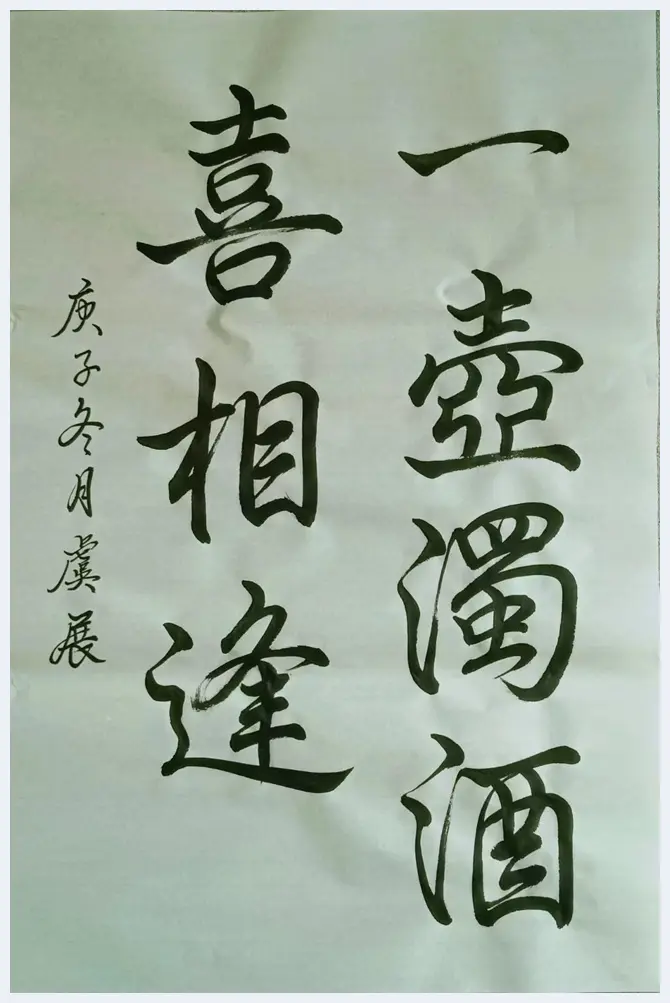 一壺濁酒
喜相逢
庚子冬月虞展